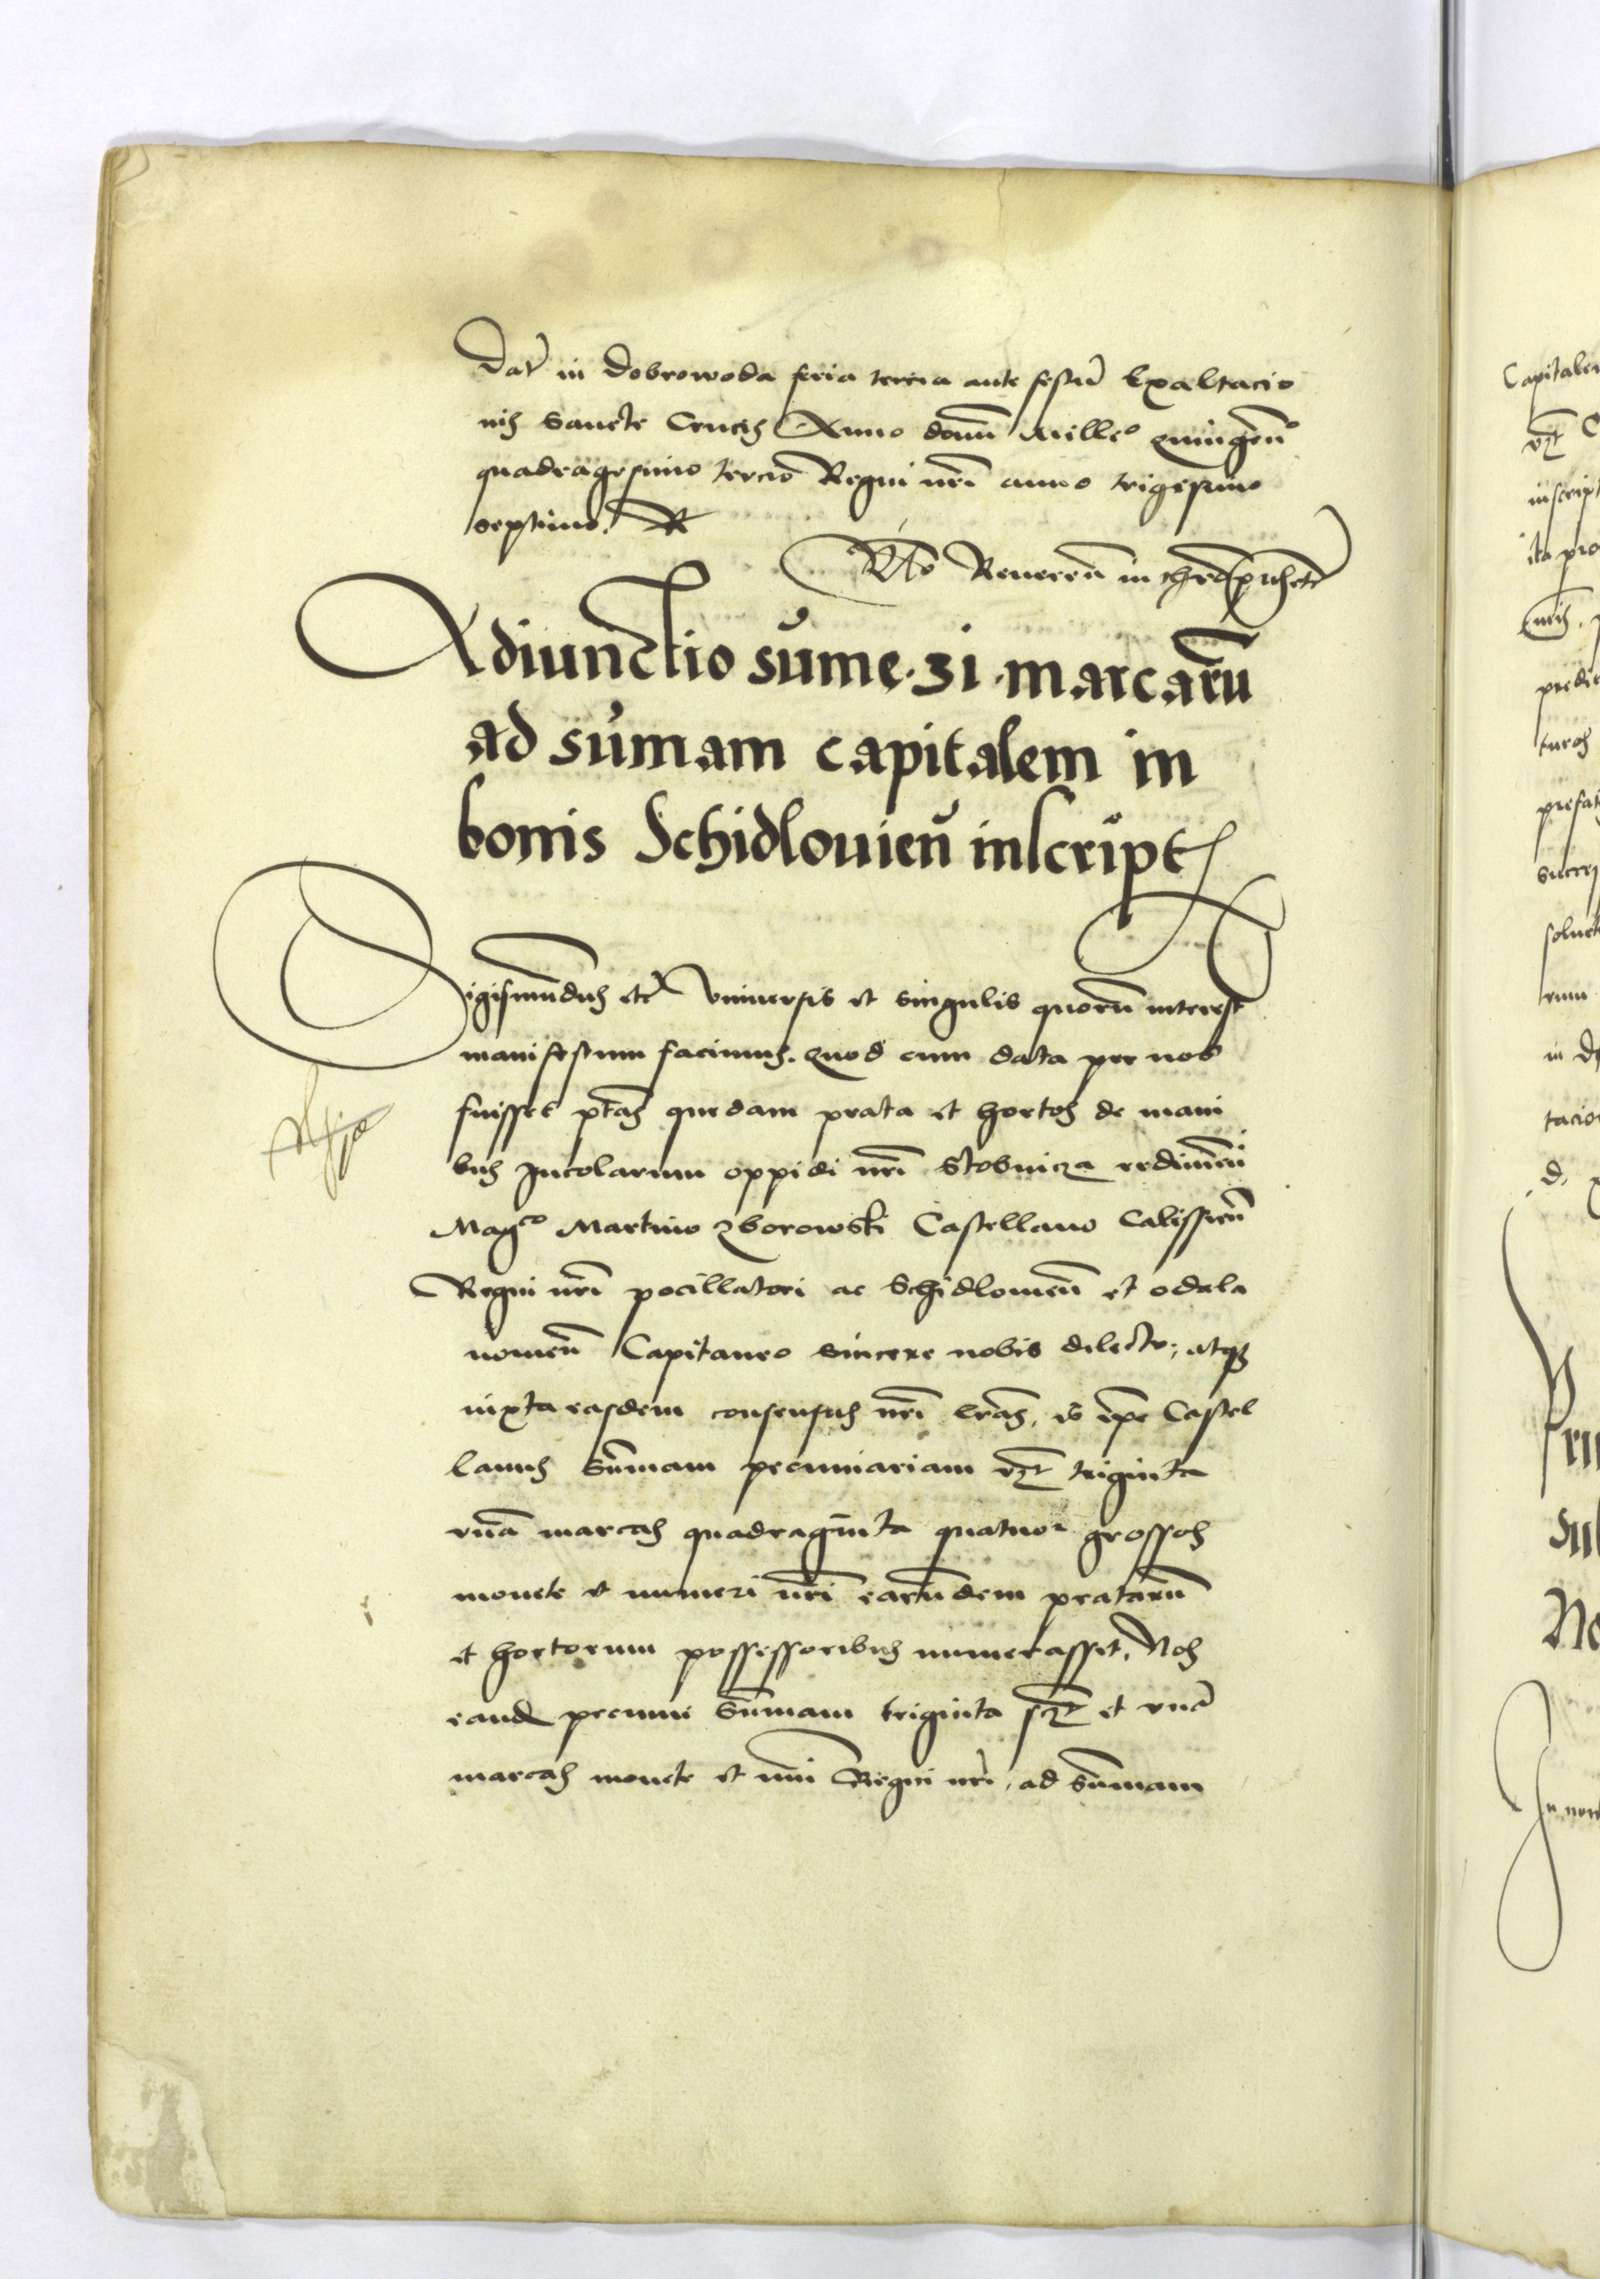 Datˀ in Dobrowoda feria tercia ante festū Exaltacio
nis Sancte Crucis Anno domi Milleo quingēo
quadragesimo tercio Regni nri anno trigesimo
septimo. R
Rlo Reueren in chro pr ut etc
Adiunctio sūme · 31 · marcarū
ad sūmam capitalem in
bonis Schidlouieñ inscript
Sigismūdus etc Vniuersis et singulis quorū interest
manifestum facimus. Quod cum data per nos
fuisset ptas quedam prata et hortos de mani
bus Incolarum oppidi nri Stobnicza redimeñ
Magco Martino Zborowski Castellano Calissień
Regni nri pocillatori ac Schidlouień et Odala
nowień Capitaneo sincere nobis dilecto; Atqȝ
iuxta easdem consensus nri lras, is ipe Castel
lanus sūmam pecuniariam vzt triginta
vnā marcas quadraginta quatuor grossos
monete et numeri nri earūdem pratarū
et hortorum possessoribus numerasset, Nos
eand pecunie sūmam triginta sczt et vnā
marcas monete et nūi Regni nri, ad sūmam
Capitalem
vzt C
inscript
ita pro
nris.
predic
turos
prefat
succes
soluet
rum
in D
tacion
d.
Pri
su
No
In nom